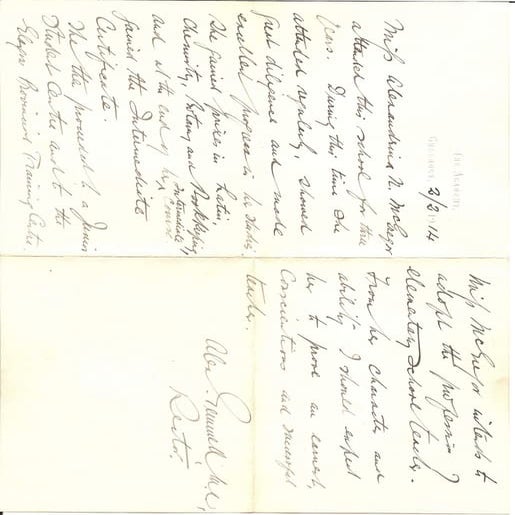 The Academy,
2/3/1914
Miss Alexandrina N. McGregor
attended this school for three
years. During this time she
attended regularly, showed
great diligence and made
excellent progress in her studies.
She gained prizes in Latin,
Chemistry, Botany and Bookkeeping,
and at the end of her Intermediate Course
gained the Intermediate
Certificate.
She then proceeded to a Junior
Student Centre and to the
Provincial Training Centre.
Miss McGregor intends to
adopt the profession of
elementary school teacher.
From her character and
ability I should expect
her to prove an earnest,
conscientious and successful
teacher.
Rector.